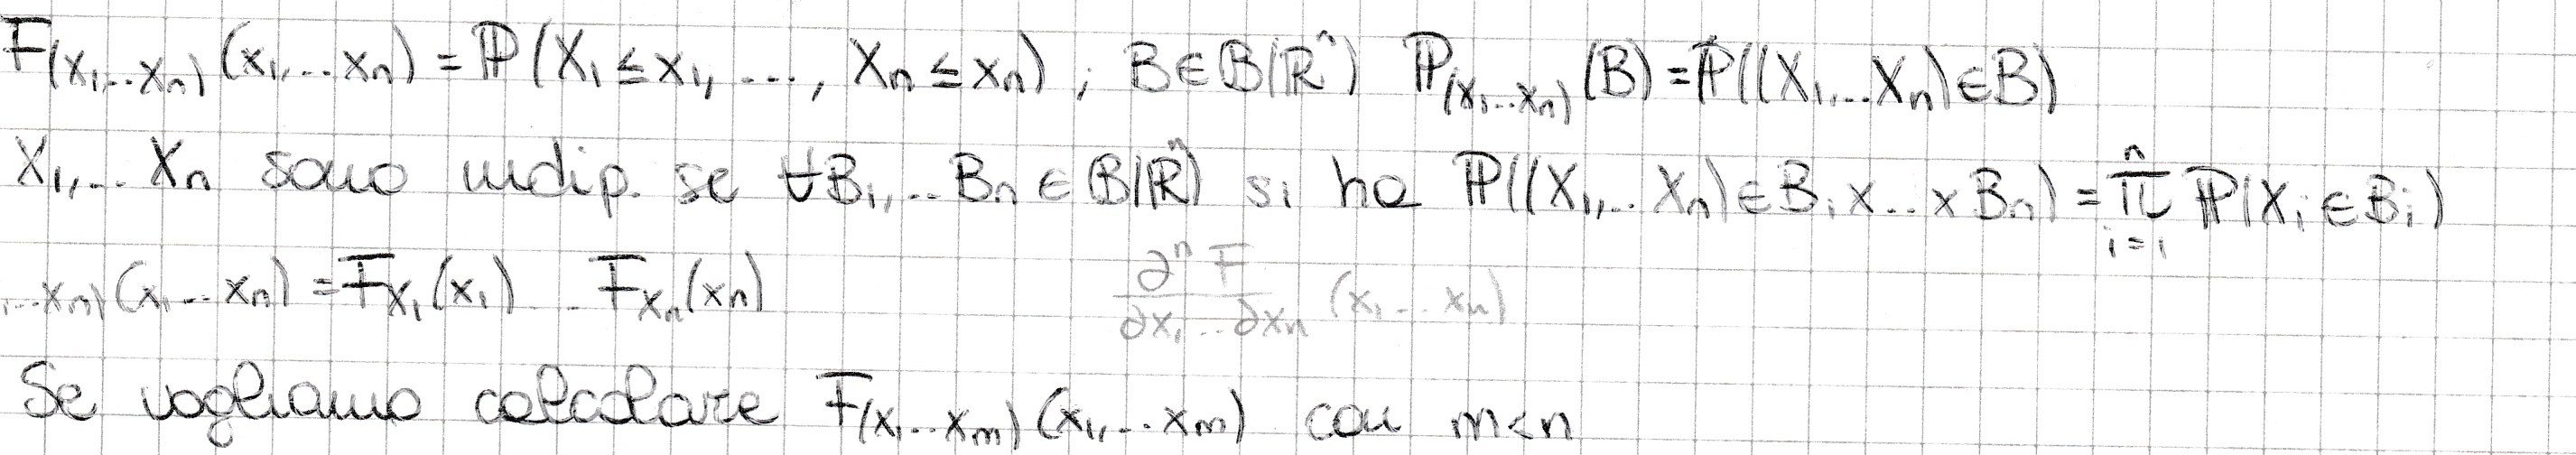 F_(X₁,..Xₙ) (x₁,...xₙ) = ℙ(X₁ ≤ x₁, ..., Xₙ ≤ xₙ) ; B ∈ B(ℝⁿ) ℙ_(X₁...Xₙ) (B) = ℙ((X₁,...Xₙ) ∈ B)
X₁,.. Xₙ sono indip. se ∀B₁,.. Bₙ ∈ B(ℝⁿ) si ha ℙ((X₁,.. Xₙ) ∈ B₁ x .. x Bₙ) = ∏ⁿ_{i=1} ℙ(Xᵢ ∈ Bᵢ)
...Xₙ) (x₁...xₙ) = F_X₁ (x₁) .. F_Xₙ (xₙ) ∂ⁿF / ∂x₁...∂xₙ (x₁...xₙ)
Se vogliamo calcolare F_(X₁...Xₘ) (x₁,...xₘ) con m<n